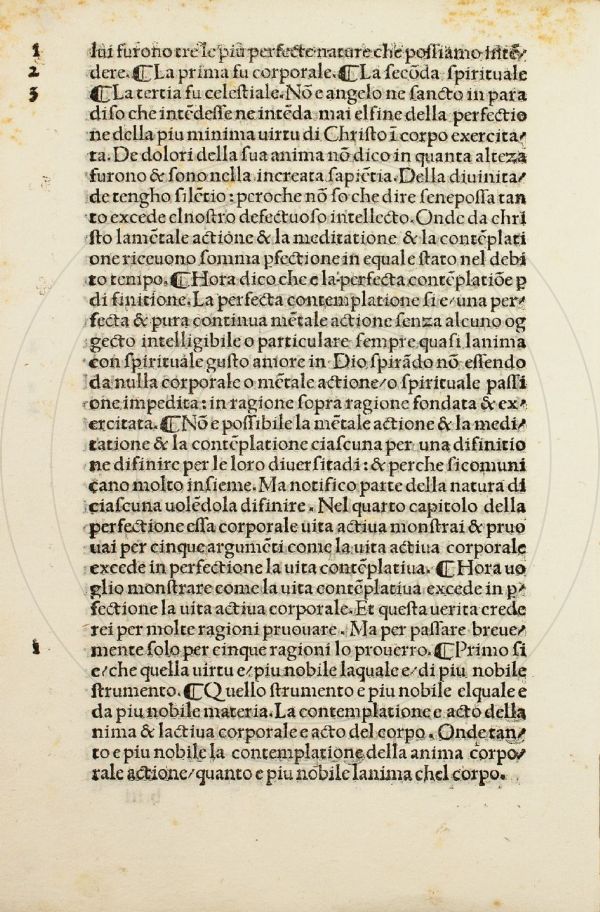 1 lui furono tre le piu perfecte nature che possiamo intē/
2 dere. ¶ La prima fu corporale. ¶ La secōda spirituale
3 ¶ La tertia fu celestiale. Nō e angelo ne sancto in para
diso che intēdesse ne intēda mai el fine della perfectio
ne della piu minima uirtu di Christo ī corpo exercita/
ta. De dolori della sua anima nō dico in quanta alteza
furono & sono nella increata sapiētia. Della diuinita/
de tengho silētio: peroche nō so che dire se ne possa tan
to excede el nostro defectuoso intellecto. Onde da chri
sto la mētale actione & la meditatione & la contēplati
one riceuono somma pfectione in equale stato nel debi
to tempo. ¶ Hora dico che e la perfecta contēplatiōe p
di finitione. La perfecta contemplatione si e/una per/
fecta & pura continua mētale actione senza alcuno og
gecto intelligibile o particulare sempre quasi lanima
con spirituale gusto amore in Dio spirādo nō essendo
da nulla corporale o mētale actione/o spirituale passi
one impedita: in ragione sopra ragione fondata & ex/
ercitata. ¶ Nō e possibile la mētale actione & la medi/
tatione & la contēplatione ciascuna per una difinitio
ne difinire per le loro diuersitadi: & perche si comuni
cano molto insieme. Ma notifico parte della natura di
ciascuna uolēdola difinire. Nel quarto capitolo della
perfectione essa corporale uita actiua monstrai & pruo
uai per cinque argumēti come la uita actiua corporale
excede in perfectione la uita contēplatiua. ¶ Hora uo
glio monstrare come la uita contēplatiua excede in p/
fectione la uita actiua corporale. Et questa uerita crede
rei per molte ragioni pruouare. Ma per passare breue/
1 mente solo per cinque ragioni lo prouerro. ¶ Primo si
e/che quella uirtu e/piu nobile laquale e/di piu nobile
strumento. ¶ Quello strumento e piu nobile elquale e
da piu nobile materia. La contemplatione e acto della
nima & lactiua corporale e acto del corpo. Onde tan/
to e piu nobile la contemplatione della anima corpo/
rale actione/quanto e piu nobile lanima chel corpo.